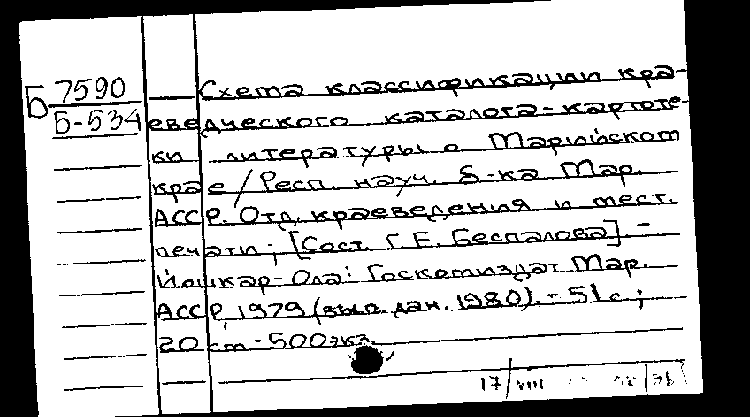 Б 7590
Б-534
Схема классификации кра-
еведческого каталога-картоте-
ки литературы о Марийском
крае / Респ. науч. б-ка Мар.
АССР. Отд. краеведения и мест.
печати; [Сост. Г. Е. Беспалова]. -
Йошкар-Ола: Госкомиздат Мар.
АССР, 1979 (вып. дан. 1980). - 51 с.;
20 см - 500 экз.
17/VIII